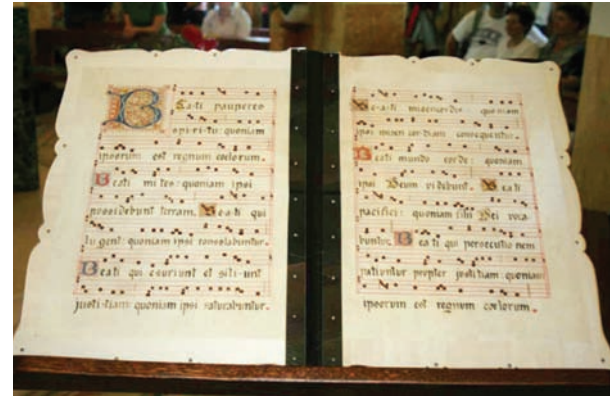 Bea-ti pauperes
spi-ri-tu: quoniam
ipsorum est regnum cœlorum.
Beati mi tes: quoniam ipsi
possidebunt terram. Bea-ti qui
lu gent: quoniam ipsi consolabuntur.
Beati qui esuriunt et siti-unt
justi-tiam: quoniam ipsi saturabuntur.
Be-a-ti misericordes: quoniam
ipsi miseri cor-diam consequentur.
Beati mundo corde: quoniam
ipsi Deum videbunt. Beati
pacifici: quoniam filii Dei voca-
buntur. Bea ti qui persecutio nem
patiuntur propter justi tiam: quoniam
ipsorum est regnum cœlorum.